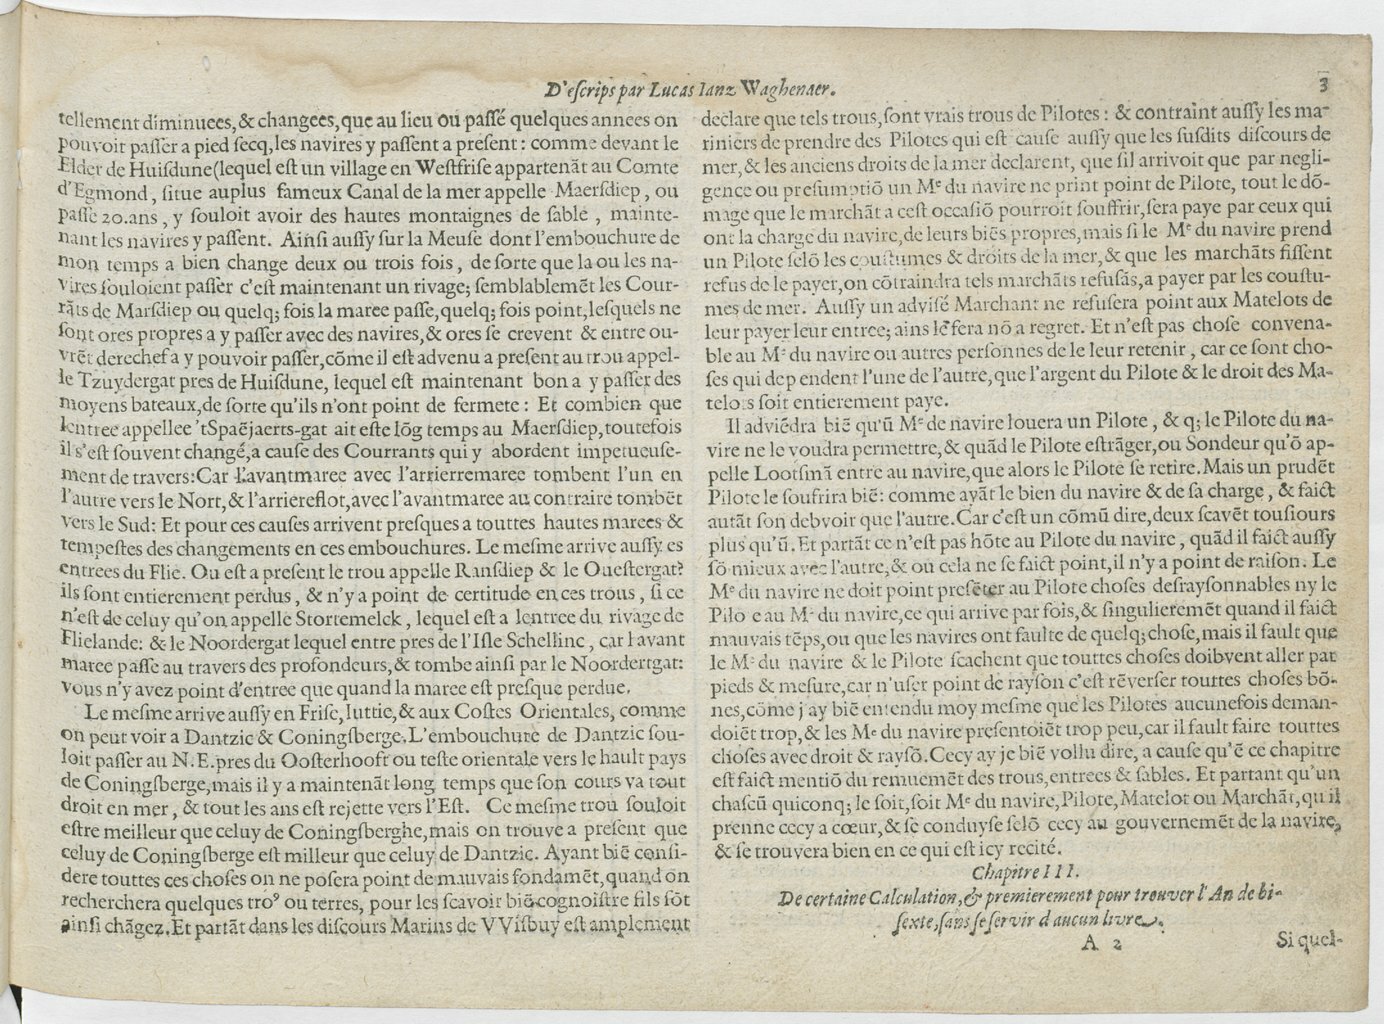 D'eſcrips par Lucas Ianz Waghenaer.
3
tellement diminuees, & changees, que au lieu ou paſſé quelques annees on
pouvoit paſſer a pied ſecq, les navires y paſſent a preſent : comme devant le
Elder de Huiſdune (lequel eſt un village en Weſtfriſe appartenāt au Comte
d'Egmond, ſitue auplus fameux Canal de la mer appelle Maerſdiep, ou
paſſe 20. ans, y ſouloit avoir des hautes montaignes de ſable, mainte-
nant les navires y paſſent. Ainſi auſſy ſur la Meuſe dont l'embouchure de
mon temps a bien change deux ou trois fois, de ſorte que la ou les na-
vires ſouloient paſſer c'eſt maintenant un rivage; ſemblablemēt les Cour-
rāts de Marſdiep ou quelq; fois la maree paſſe, quelq; fois point, leſquels ne
ſont ores propres a y paſſer avec des navires, & ores ſe crevent & entre ou-
vrēt derechef a y pouvoir paſſer, cōme il eſt advenu a preſent au trou appel-
le Tzuydergat pres de Huiſdune, lequel eſt maintenant bon a y paſſer des
moyens bateaux, de ſorte qu'ils n'ont point de fermete : Et combien que
lentree appellee 'tSpaējaerts-gat ait eſte lōg temps au Maerſdiep, toutefois
il s'eſt ſouvent changé, a cauſe des Courrants qui y abordent impetueuſe-
ment de travers: Car l'avantmaree avec l'arrierremaree tombent l'un en
l'autre vers le Nort, & l'arriereflot, avec l'avantmaree au contraire tombēt
vers le Sud: Et pour ces cauſes arrivent preſques a touttes hautes marees &
tempeſtes des changements en ces embouchures. Le meſme arrive auſſy es
entrees du Flie. Ou eſt a preſent le trou appelle Ranſdiep & le Oueſtergat?
ils ſont entierement perdus, & n'y a point de certitude en ces trous, ſi ce
n'eſt de celuy qu'on appelle Stortemelck, lequel eſt a lentree du rivage de
Flielande: & le Noordergat lequel entre pres de l'Iſle Schellinc, car l'avant
maree paſſe au travers des profondeurs, & tombe ainſi par le Noordertgat:
vous n'y avez point d'entree que quand la maree eſt preſque perdue.
Le meſme arrive auſſy en Friſe, Iuttie, & aux Coſtes Orientales, comme
on peut voir a Dantzic & Coningſberge. L'embouchure de Dantzic ſou-
loit paſſer au N.E. pres du Ooſterhooft ou teſte orientale vers le hault pays
de Coningſberge, mais il y a maintenāt long temps que ſon cours va tout
droit en mer, & tout les ans eſt rejette vers l'Eſt. Ce meſme trou ſouloit
eſtre meilleur que celuy de Coningſberghe, mais on trouve a preſent que
celuy de Coningſberge eſt milleur que celuy de Dantzic. Ayant biē conſi-
dere touttes ces choſes on ne poſera point de mauvais fondamēt, quand on
recherchera quelques troꝰ ou terres, pour les ſcavoir biē cognoiſtre ſils ſōt
ainſi chāgez. Et partāt dans les diſcours Marins de VViſbuy eſt amplement
declare que tels trous, ſont vrais trous de Pilotes : & contraint auſſy les ma-
riniers de prendre des Pilotes qui eſt cauſe auſſy que les ſuſdits diſcours de
mer, & les anciens droits de la mer declarent, que ſil arrivoit que par negli-
gence ou preſumptiō un Mᵉ du navire ne print point de Pilote, tout le dō-
mage que le marchāt a ceſt occaſiō pourroit ſouffrir, ſera paye par ceux qui
ont la charge du navire, de leurs biēs propres, mais ſi le Mᵉ du navire prend
un Pilote ſelō les couſtumes & droits de la mer, & que les marchāts fiſſent
refus de le payer, on cōtraindra tels marchāts refuſās, a payer par les couſtu-
mes de mer. Auſſy un adviſé Marchant ne refuſera point aux Matelots de
leur payer leur entree; ains le fera nō a regret. Et n'eſt pas choſe convena-
ble au Mᵉ du navire ou autres perſonnes de le leur retenir, car ce ſont cho-
ſes qui dependent l'une de l'autre, que l'argent du Pilote & le droit des Ma-
telots ſoit entierement paye.
Il adviēdra biē qu'ū Mᵉ de navire louera un Pilote, & q; le Pilote du na-
vire ne le voudra permettre, & quād le Pilote eſtrāger, ou Sondeur qu'ō ap-
pelle Lootſmā entre au navire, que alors le Pilote ſe retire. Mais un prudēt
Pilote le ſoufrira biē: comme ayāt le bien du navire & de ſa charge, & faict
autāt ſon debvoir que l'autre. Car c'eſt un cōmū dire, deux ſcavēt touſiours
plus qu'ū. Et partāt ce n'eſt pas hōte au Pilote du navire, quād il faict auſſy
ſō mieux avec l'autre, & ou cela ne ſe faict point, il n'y a point de raiſon. Le
Mᵉ du navire ne doit point preſēter au Pilote choſes deſrayſonnables ny le
Pilo e au Mᵉ du navire, ce qui arrive par fois, & ſingulieremēt quand il faict
mauvais tēps, ou que les navires ont faulte de quelq; choſe, mais il fault que
le Mᵉ du navire & le Pilote ſcachent que touttes choſes doibvent aller par
pieds & meſure, car n'uſer point de rayſon c'eſt rēverſer touttes choſes bō-
nes, cōme j'ay biē entendu moy meſme que les Pilotes aucunefois deman-
doiēt trop, & les Mᵉ du navire preſentoiēt trop peu, car il fault faire touttes
choſes avec droit & rayſō. Cecy ay je biē vollu dire, a cauſe qu'ē ce chapitre
eſt faict mentiō du remuemēt des trous, entrees & ſables. Et partant qu'un
chaſcū quiconq; le ſoit, ſoit Mᵉ du navire, Pilote, Matelot ou Marchāt, qu'il
prenne cecy a cœur, & ſe conduyſe ſelō cecy au gouvernemēt de la navire,
& ſe trouvera bien en ce qui eſt icy recité.
Chapitre III.
De certaine Calculation, & premierement pour trouver l'An de bi-
ſexte, ſans ſe ſervir d'aucun livre.
A 2
Si quel-